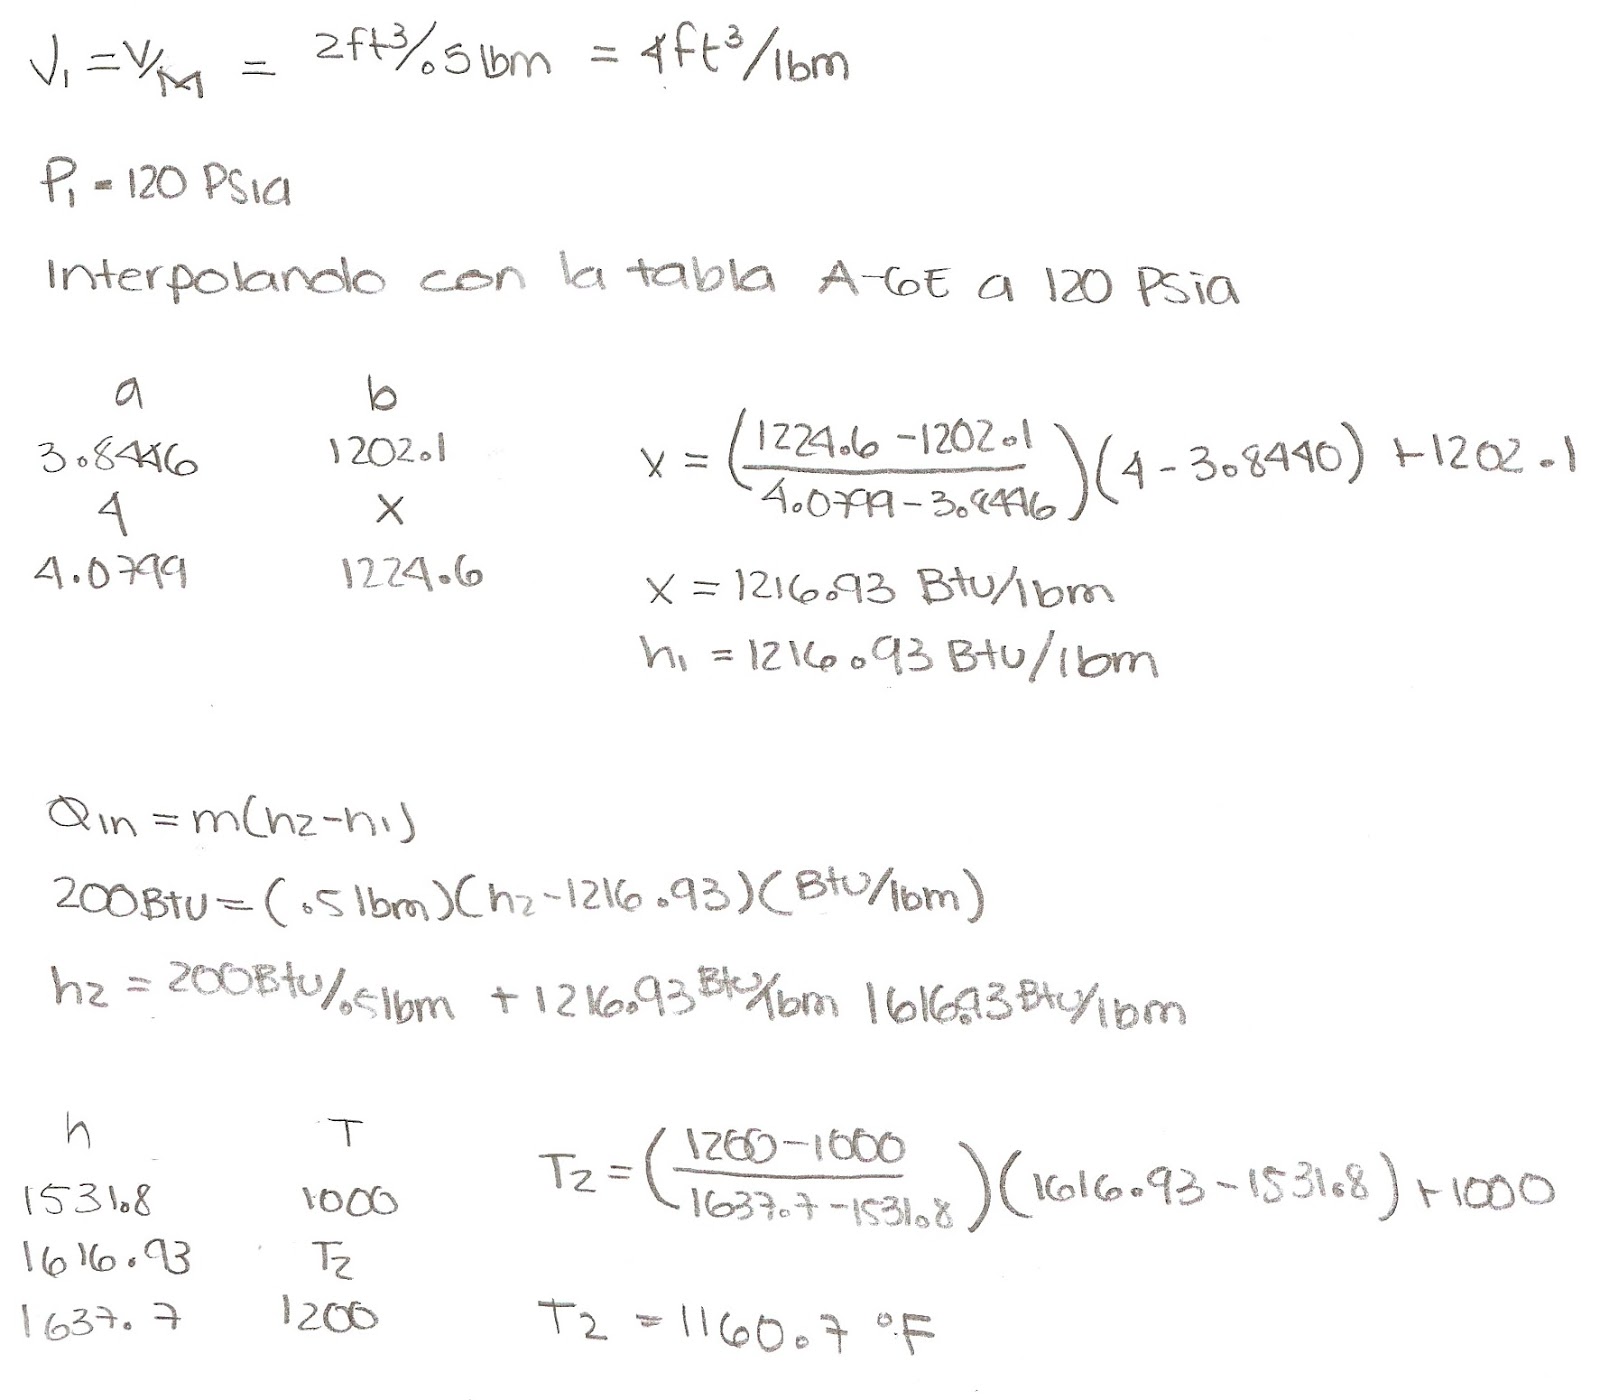 V₁ = V/M = 2ft³/.5 lbm = 4ft³/lbm
P₁ = 120 Psia
Interpolando con la tabla A-6E a 120 Psia
a b
3.8446 1202.1
4 X
4.0799 1224.6
X = (1224.6 - 1202.1 / 4.0799 - 3.8446)(4 - 3.8440) + 1202.1
X = 1216.93 Btu/lbm
h₁ = 1216.93 Btu/lbm
Qin = m(h2-h1)
200Btu = (.5 lbm)(h2-1216.93)(Btu/lbm)
h2 = 200Btu/.5lbm + 1216.93 Btu/lbm 1616.93 Btu/lbm
h T
1531.8 1000
1616.93 T2
1637.7 1200
T2 = (1200-1000 / 1637.7-1531.8)(1616.93-1531.8) + 1000
T2 = 1160.7 °F